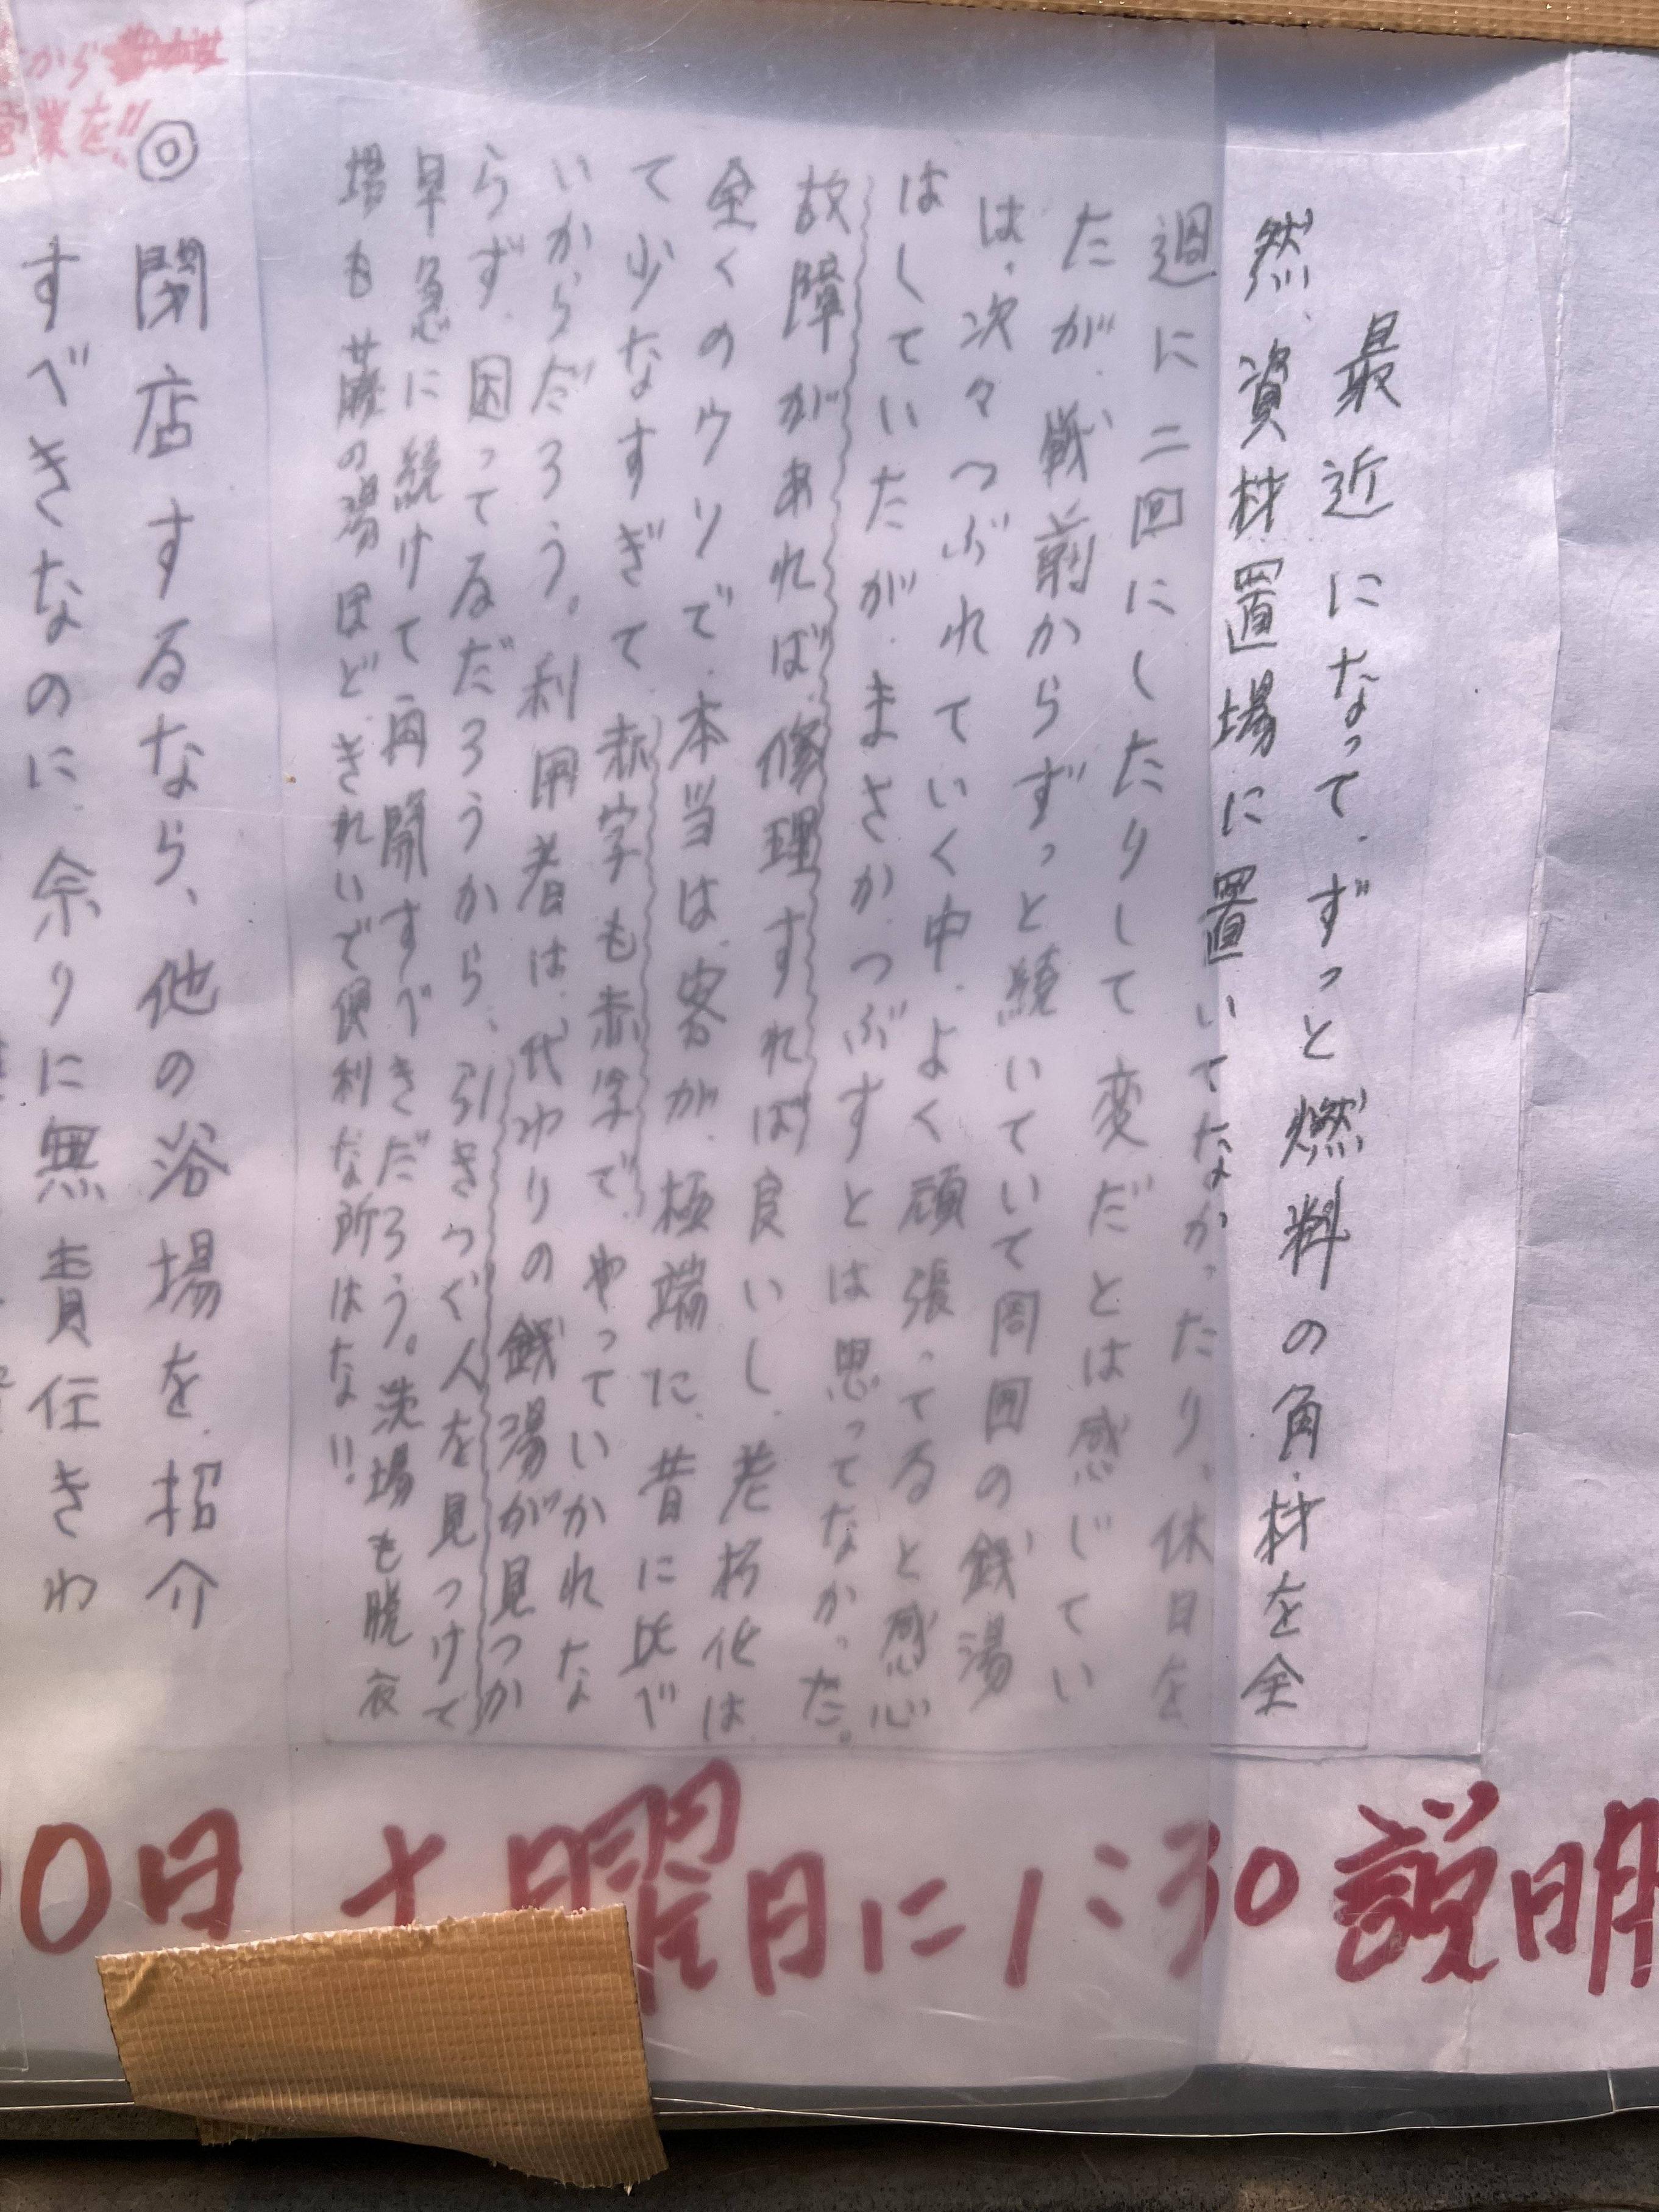 最近になって、ずっと燃料の角材を全
然、資材置場に置いてなかったり、休日を
週に二回にしたりして変だとは感じてい
たが、戦前からずっと続いていて周囲の銭湯
は、次々つぶれていく中、よく頑張ってると感心
はしていたが、まさかつぶすとは思ってなかった。
故障があれば、修理すれば良いし、老朽化は
全くのウソで、本当は、客が、極端に、昔に比べ
て少なすぎて、赤字も赤字で、やっていかれな
いからだろう。利用者は、代わりの銭湯が見つか
らず、困ってるだろうから、引きつぐ人を見つけて
早急に続けて再開すべきだろう。洗場も脱衣
場も藤の湯ほど、きれいで便利な所はない!!
◎閉店するなら、他の浴場を、招介
すべきなのに、余りに無責任きわ
から
営業を!!
0日 土曜日に1:30説明